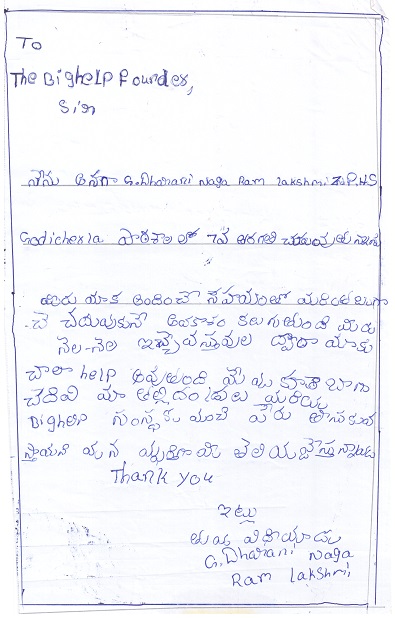 TO
The Bighelp Founder,
Sir
నేను అనగా G.Dharani Naga Ram lakshmi Z.P.H.S
Godicherla పాఠశాల లో 7వ తరగతి చదువుతున్నాను
మీరు మాకు అందించే సహాయంతో మరింత బాగా
చదువుకునే అవకాశం కలుగుతుంది మీరు
నెల-నెల ఇచ్చే వస్తువుల ద్వారా మాకు
చాలా help అవుతుంది మేము కూడా బాగా
చదివి మా తల్లిదండ్రులు మరియు
Bighelp సంస్థకు మంచి పేరు తీసుకువ
తెలియజేస్తున్నాను
Thank you
ఇట్లు
మీ విధేయురాలు
G.Dharani Naga
Ram lakshmi